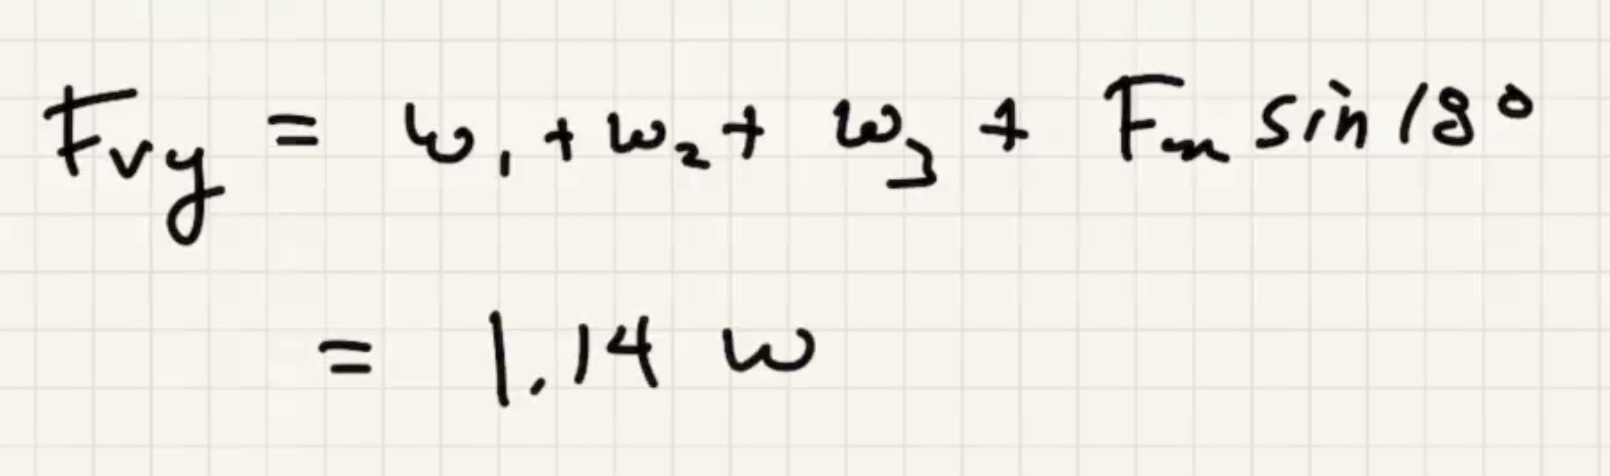 Fvy = w₁ + w₂ + w₃ + Fₘ sin 18°
= 1.14 w